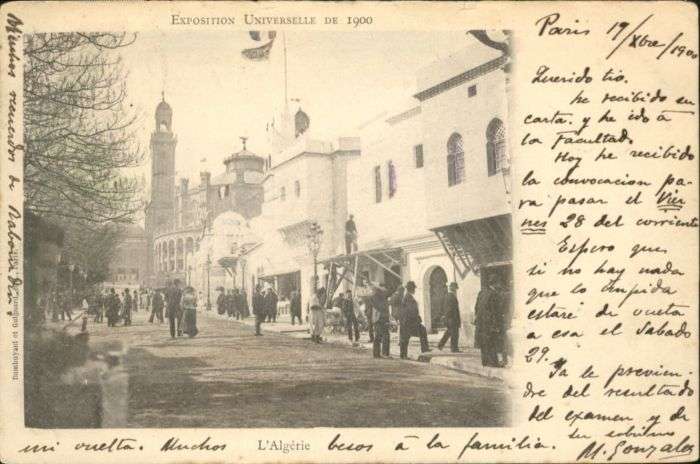 EXPOSITION UNIVERSELLE DE 1900
Paris 19/Xbre/1900
Querido tio.
he recibido su
carta. y he ido á
la Facultad.
Hoy he recibido
la convocacion pa-
ra pasar el Vier-
nes 28 del corriente
Espero que
si no hay nada
que lo impida
estaré de vuelta
a esa el Sabado
29.
Ya le previen-
dre del resultado
del examen y de
mi vuelta. Muchos besos à la familia.
su sobrino
M. Gonzalez
L'Algérie
Muchos recuerdos de